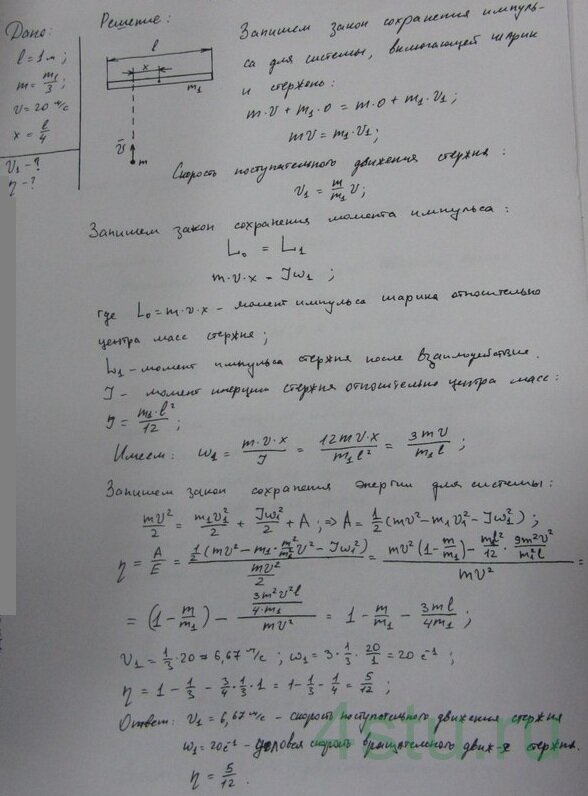 Дано:
l = 1 м ;
m = m₁/3 ;
v = 20 м/с
x = l/4
v₁ - ?
η - ?
Решение:
l
x
m₁
v̄
m
Запишем закон сохранения импуль-
са для системы, включающей шарик
и стержень:
m·v + m₁·0 = m·0 + m₁·v₁ ;
mv = m₁·v₁ ;
Скорость поступательного движения стержня :
v₁ = m/m₁ v ;
Запишем закон сохранения момента импульса :
L₀ = L₁
m·v·x = Jω₁ ;
где L₀ = m·v·x - момент импульса шарика относительно
центра масс стержня ;
L₁ - момент импульса стержня после взаимодействие.
J - момент инерции стержня относительно центра масс :
J = m₁·l²/12 ;
Имеем : ω₁ = m·v·x/J = 12mv·x/m₁l² = 3mv/m₁l ;
Запишем закон сохранения энергии для системы :
mv²/2 = m₁v₁²/2 + Jω₁²/2 + A ; ⇒ A = 1/2 (mv² - m₁v₁² - Jω₁²) ;
η = A/E = 1/2 (mv² - m₁·m²/m₁² v² - Jω₁²) / mv²/2 = mv² (1 - m/m₁) - m₁l²/12 · 9m²v²/m₁²l / mv² =
= (1 - m/m₁) - 3m²v²l/4·m₁ / mv² = 1 - m/m₁ - 3ml/4m₁ ;
v₁ = 1/3 · 20 = 6,67 м/с ; ω₁ = 3·1/3 · 20/1 = 20 с⁻¹ ;
η = 1 - 1/3 - 3/4 · 1/3 · 1 = 1 - 1/3 - 1/4 = 5/12 ;
Ответ: v₁ = 6,67 м/с - скорость поступательного движения стержня
ω₁ = 20 с⁻¹ - угловая скорость вращательного движ-я стержня.
η = 5/12 .
4stu.ru